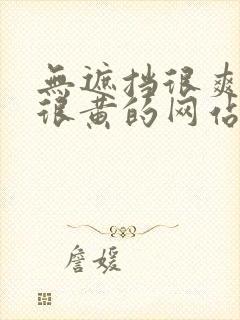 無遮挡很爽
很黄的网佔
詹媛